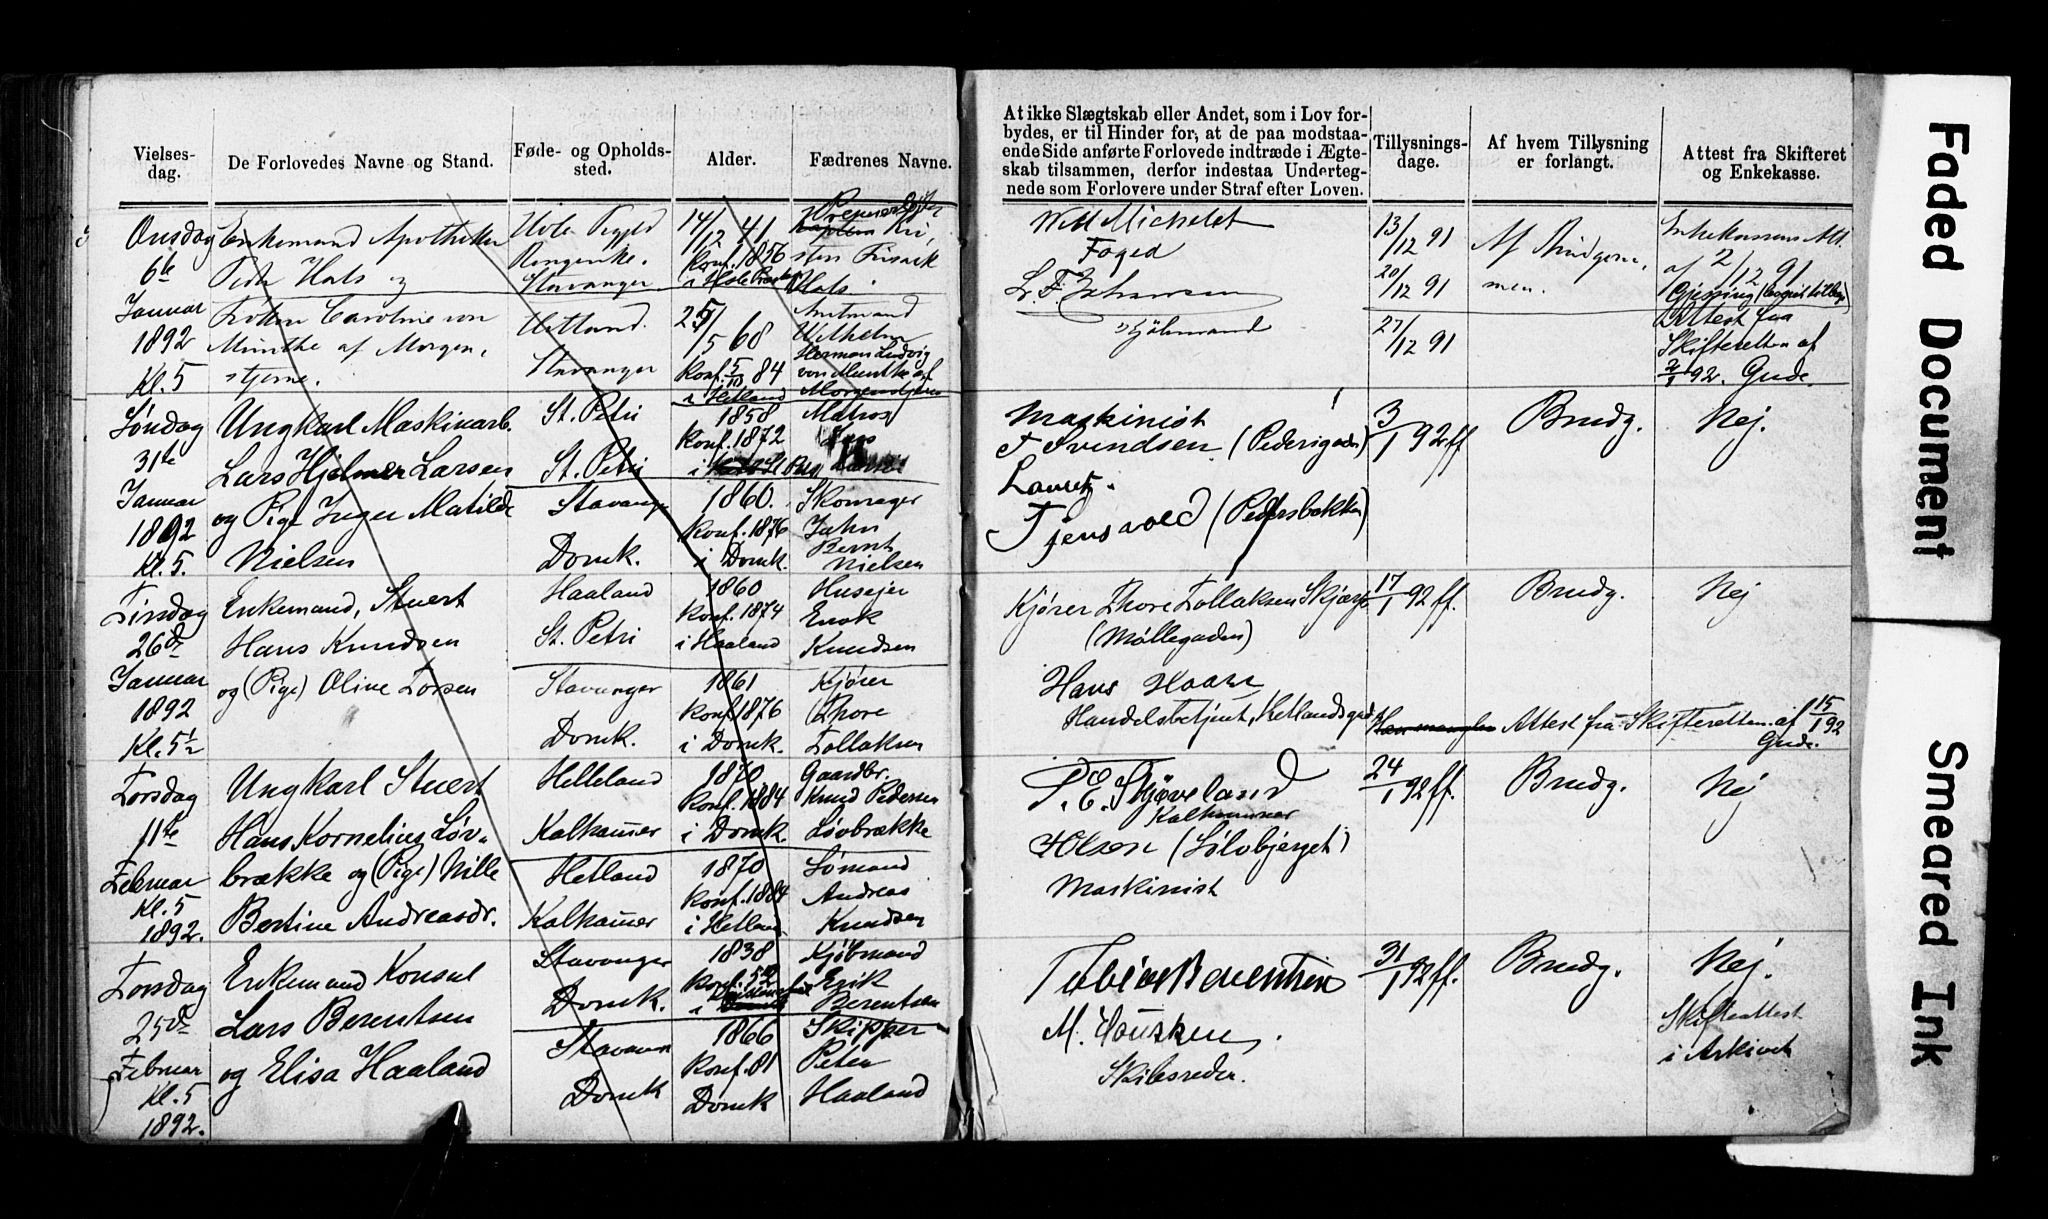 Vielses-
dag.
De Forlovedes Navne og Stand.
Føde- og Opholds-
sted.
Alder.
Fædrenes Navne.
At ikke Slægtskab eller Andet, som i Lov for-
bydes, er til Hinder for, at de paa modstaa-
ende Side anførte Forlovede indtræde i Ægte-
skab tilsammen, derfor indestaa Underteg-
nede som Forlovere under Straf efter Loven.
Tillysnings-
dage.
Af hvem Tillysning
er forlangt.
Attest fra Skifteret
og Enkekasse.
Onsdag
6te
Januar
1892
Kl. 5
Enkemand Apotheker
Peter Hals og
Caroline von
Munthe af Morgen,
stjerne.
Hole
Ringerike.
Stavanger
Hetland.
Stavanger
14/12 41
Konf. 1856
25/5 68
Konf. 5/10 84
i Hetland
Hals.
Amtmand
Wilhelm
Herman Ludvig
von Munthe af
Morgenstjerne
Michelet
Foged
13/12 91
20/12 91
27/12 91
Af Brudgom,
men.
af 2/12 91
Attest fra
Skifteretten af
92. Gude.
Søndag
31te
Januar
1892
Kl. 5.
Ungkarl Maskinarb.
Lars Hjelmer Larsen
og Pige Inger Matilde
Nielsen
St. Petri
St. Petri
Stavanger
Domk.
1858
Konf. 1872
1860.
Konf. 1876
i Domk.
Matros
Lars
Skomager
Jahn
Bernt
Nielsen
Maskinist
T Svendsen. (Pedersgaden)
Lauritz.
Tjensvold (Pedersbakken)
3/1 92 ff
Brudg.
Nej.
Tirsdag
26de
Januar
1892
Kl. 5½
Enkemand, Stuert
Hans Knudsen
og (Pige) Oline Torsen
Haaland
St. Petri
Stavanger
Domk.
1860
Konf. 1874
i Haaland
1861
Konf. 1876
i Domk.
Husejer
Enok
Knudsen
Kjører
Thore
Tollaksen
Kjører Thore Tollaksen
(Møllegaden)
Hans Haar
Handelsbetjent, Hetlandsgd.
17/1 92 ff.
Brudg.
Nej
Attest fra Skifteretten af 15/1 92
Gude.
Torsdag
11te
Februar
Kl. 5
1892.
Ungkarl Stuert
Hans Kornelius Løv-
brække og (Pige) Nille
Bertine Andreasdr.
Helleland
Kalhammer
Hetland
Kalhammer
1870
Konf. 1884
i Domk.
1870
Konf. 1884
i Hetland
Gaardbr.
Knud Pedersen
Løvbrække
Sømand
Andreas
Knudsen
P. E. Skjøveland
Kalhammer
Olsen (Sølvbjerget)
Maskinist
24/1 92 ff.
Brudg.
Nej
Torsdag
25de
Februar
Kl. 5
1892.
Enkemand Konsul
Lars Berentsen
og Elisa Haaland
Stavanger
Domk.
Stavanger
Domk
1838
Konf. 52
1866
Konf. 81
Domk
Kjøbmand
Erik
Berentsen
Skipper
Peter
Haaland
Tobias Berentsen
M. Housken.
Skibsreder.
31/1 92 ff.
Brudg.
Nej.
Skifteattest
i Arkivet
Faded Document
Smeared Ink